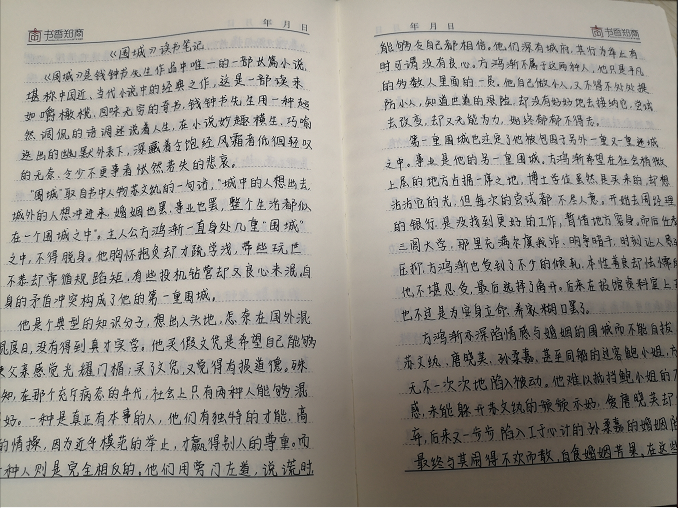 书香知商
年 月 日
《围城》读书笔记
《围城》是钱钟书先生作品中唯一的一部长篇小说,
堪称中国近、当代小说中的经典之作,这是一部读来
如嚼橄榄,回味无穷的奇书,钱钟书先生用一种超
然调侃的语调述说着人生,在小说妙趣横生,巧喻
迭出的幽默外表下,深藏着令饱经风霜者低徊轻叹
的无奈,令少不更事者怅然若失的悲哀。
"围城"取自书中人物苏文纨的一句话,"城中的人想出去,
城外的人想冲进来,婚姻也罢,事业也罢,整个生活都似
在一个围城之中"。主人公方鸿渐一直身处几重"围城"
之中,不得脱身。他胸怀抱负却才疏学浅,带些玩世
不恭却常循规蹈矩,有些投机钻营却又良心未泯,自
身的矛盾冲突构成了他的第一重围城。
他是个典型的知识分子,想出人头地,怎奈在国外混
混度日,没有得到真才实学。他买假文凭是希望自己能够
父亲感觉光耀门楣,买了文凭,又觉得有损道德。殊
知,在那个充斥病态的年代,社会上只有两种人能够混
好。一种是真正有本事的人,他们有独特的才能,高
的情操,因为近乎模范的举止,才赢得别人的尊重。而
种人则是完全相反的。他们用旁门左道,说谎时
年 月 日
书香知商
能够连自己都相信。他们深有城府,其行为举止有
时可谓没有良心。方鸿渐不属于这两种人,他只是平凡
的多数人里面的一员。他自己做小人,又不得不处处提
防小人,知道世道的艰险,却没有好好地去接纳它,尝试
去改变,却又无能为力,始终郁郁不得志。
第一重围城也注定了他被包围于另外一重又一重迷城
之中。事业是他的另一重围城。方鸿渐希望在社会稍微
上层的地方占拥一席之地,博士学位虽然是买来的,却想
沾沾它的光,但每次的尝试都不尽人意。开始去周经理
的银行,是没找到更好的工作,暂借地方容身。而后任教
三闾大学,那里尔虞我诈,明争暗斗,时刻让人感
压抑,方鸿渐也受到了不少的倾轧,本性善良却怯懦的
他不堪忍受,最后选择了离开。后来在报馆资料室上
也不过是为安身立命,养家糊口罢了。
方鸿渐亦深陷情感与婚姻的围城而不能自拔
苏文纨,唐晓芙,孙柔嘉,甚至同船的过客鲍小姐,方
无不一次次地陷入被动。他难以抵挡鲍小姐的
惑,未能躲开苏文纨的频频示好,爱唐晓芙却
弃,后来又一步步陷入工于心计的孙柔嘉的婚姻陷
最终与其闹得不欢而散,自食婚姻苦果。在这些